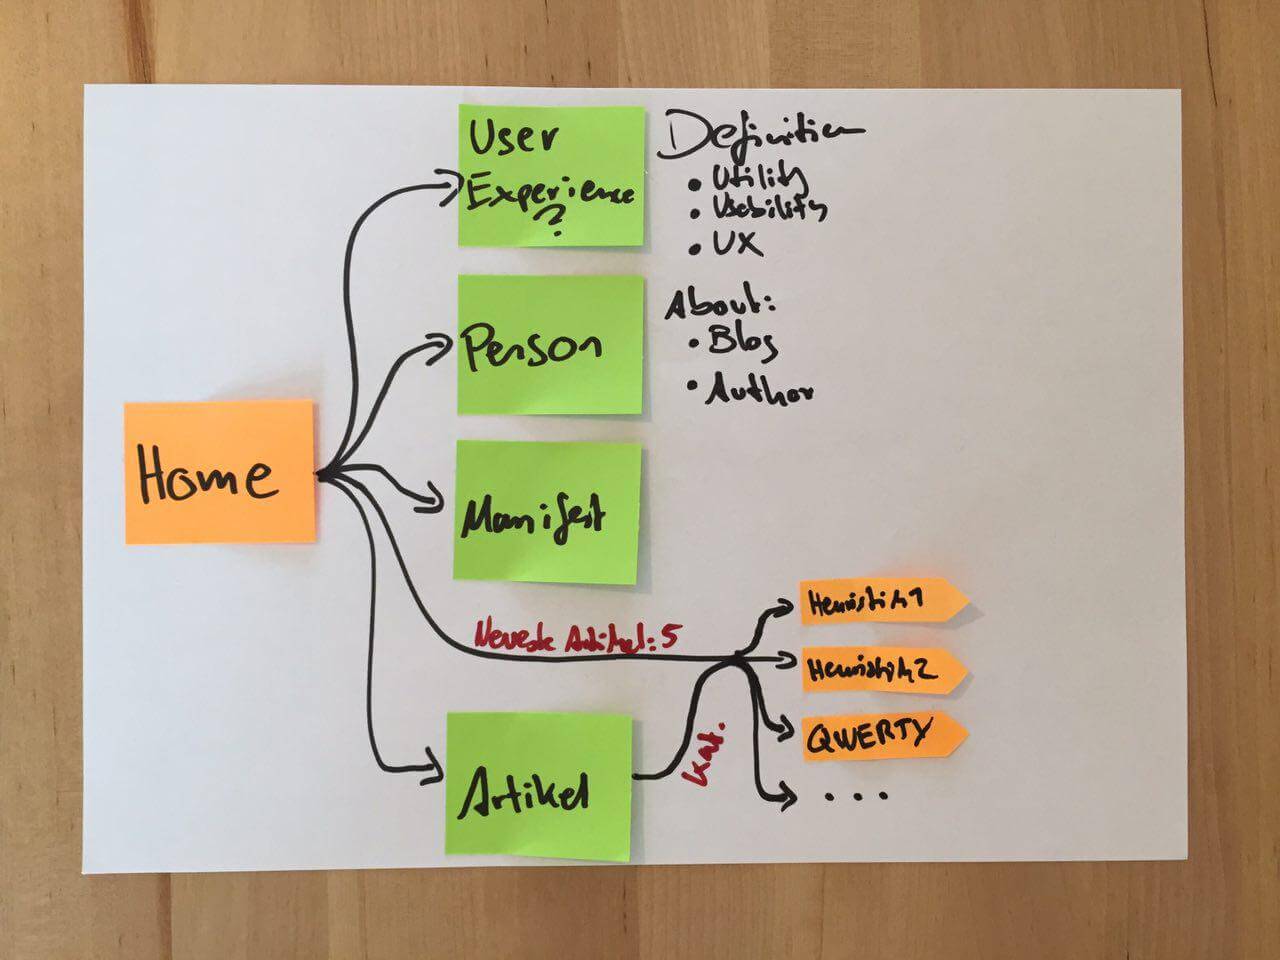 User
Experience
?
Definition
• Utility
• Usability
• UX
Person
About:
• Blog
• Author
Home
Manifest
Neueste Artikel: 5
Heuristik 1
Heuristik 2
QWERTY
• • •
Kat.
Artikel